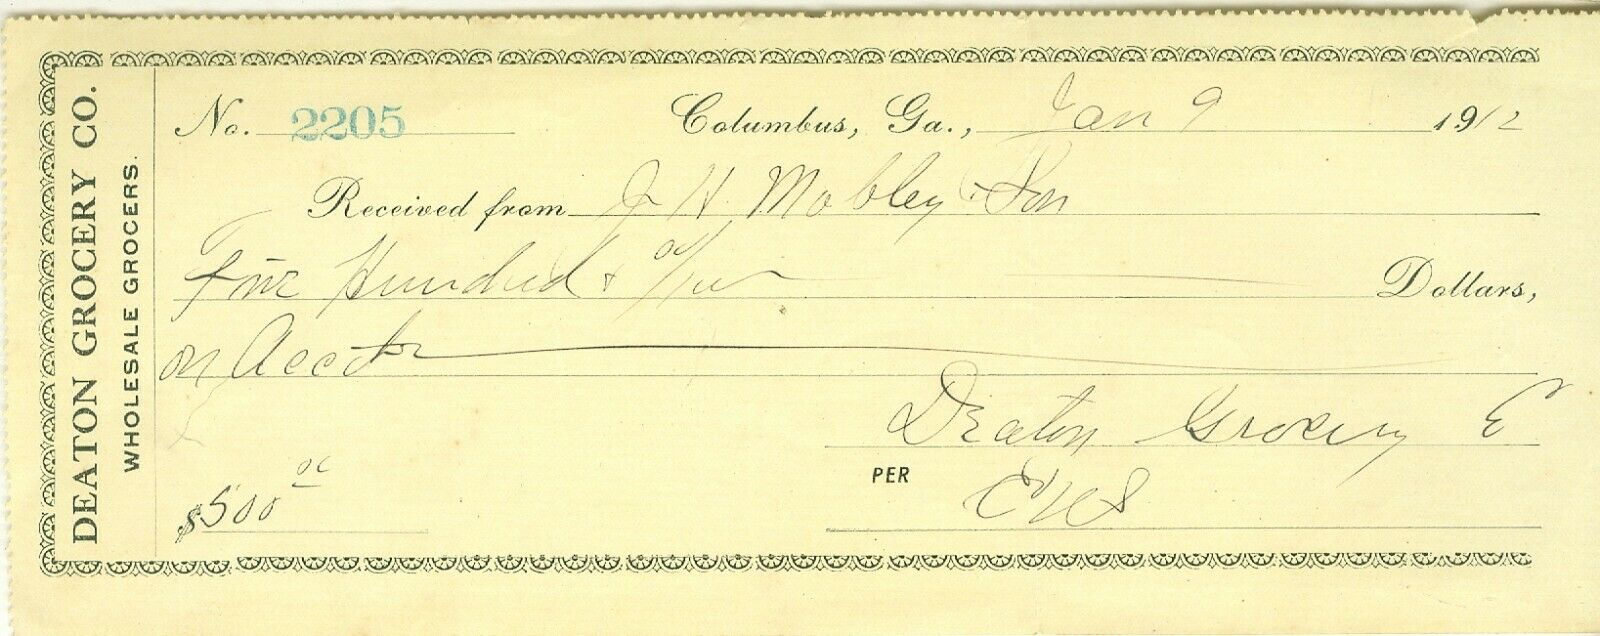 DEATON GROCERY CO.
WHOLESALE GROCERS.
No. 2205 Columbus, Ga., Jan 9 1912
Received from J H Mobley & Son
Five Hundred & 00/100 Dollars,
on Acct
Deaton Grocery Co
PER
$500 00